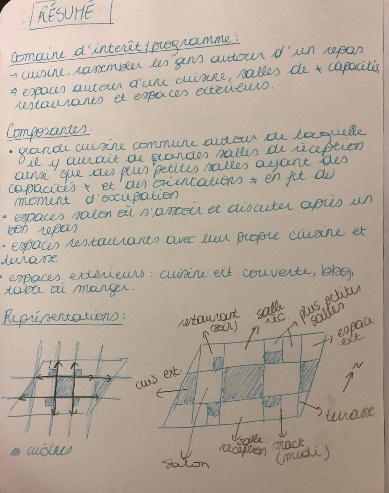 RÉSUMÉ
Domaine d'intérêt/programme:
→ cuisine rassembler les gens autour d'un repas
→ espaces autour d'une cuisine, salles de ≠ capacités,
restaurants et espaces extérieurs.
Composantes:
• grande cuisine commune autour de laquelle
il y aurait de grandes salles de réception
ainsi que des plus petites salles ayant des
capacités ≠ et des orientations ≠ en fct du
moment d'occupation
• espaces salon où s'asseoir et discuter après un
bon repas
• espaces restaurants avec leur propre cuisine et
terrasse
• espaces extérieurs: cuisine ext. couverte, bbq,
table où manger.
Représentations:
restaurant
(soir)
salle
rec.
plus petites
salles
espace
ext.
cuis ext.
N
terrasse
salon
salle
réception
snack
(midi)
cuisines